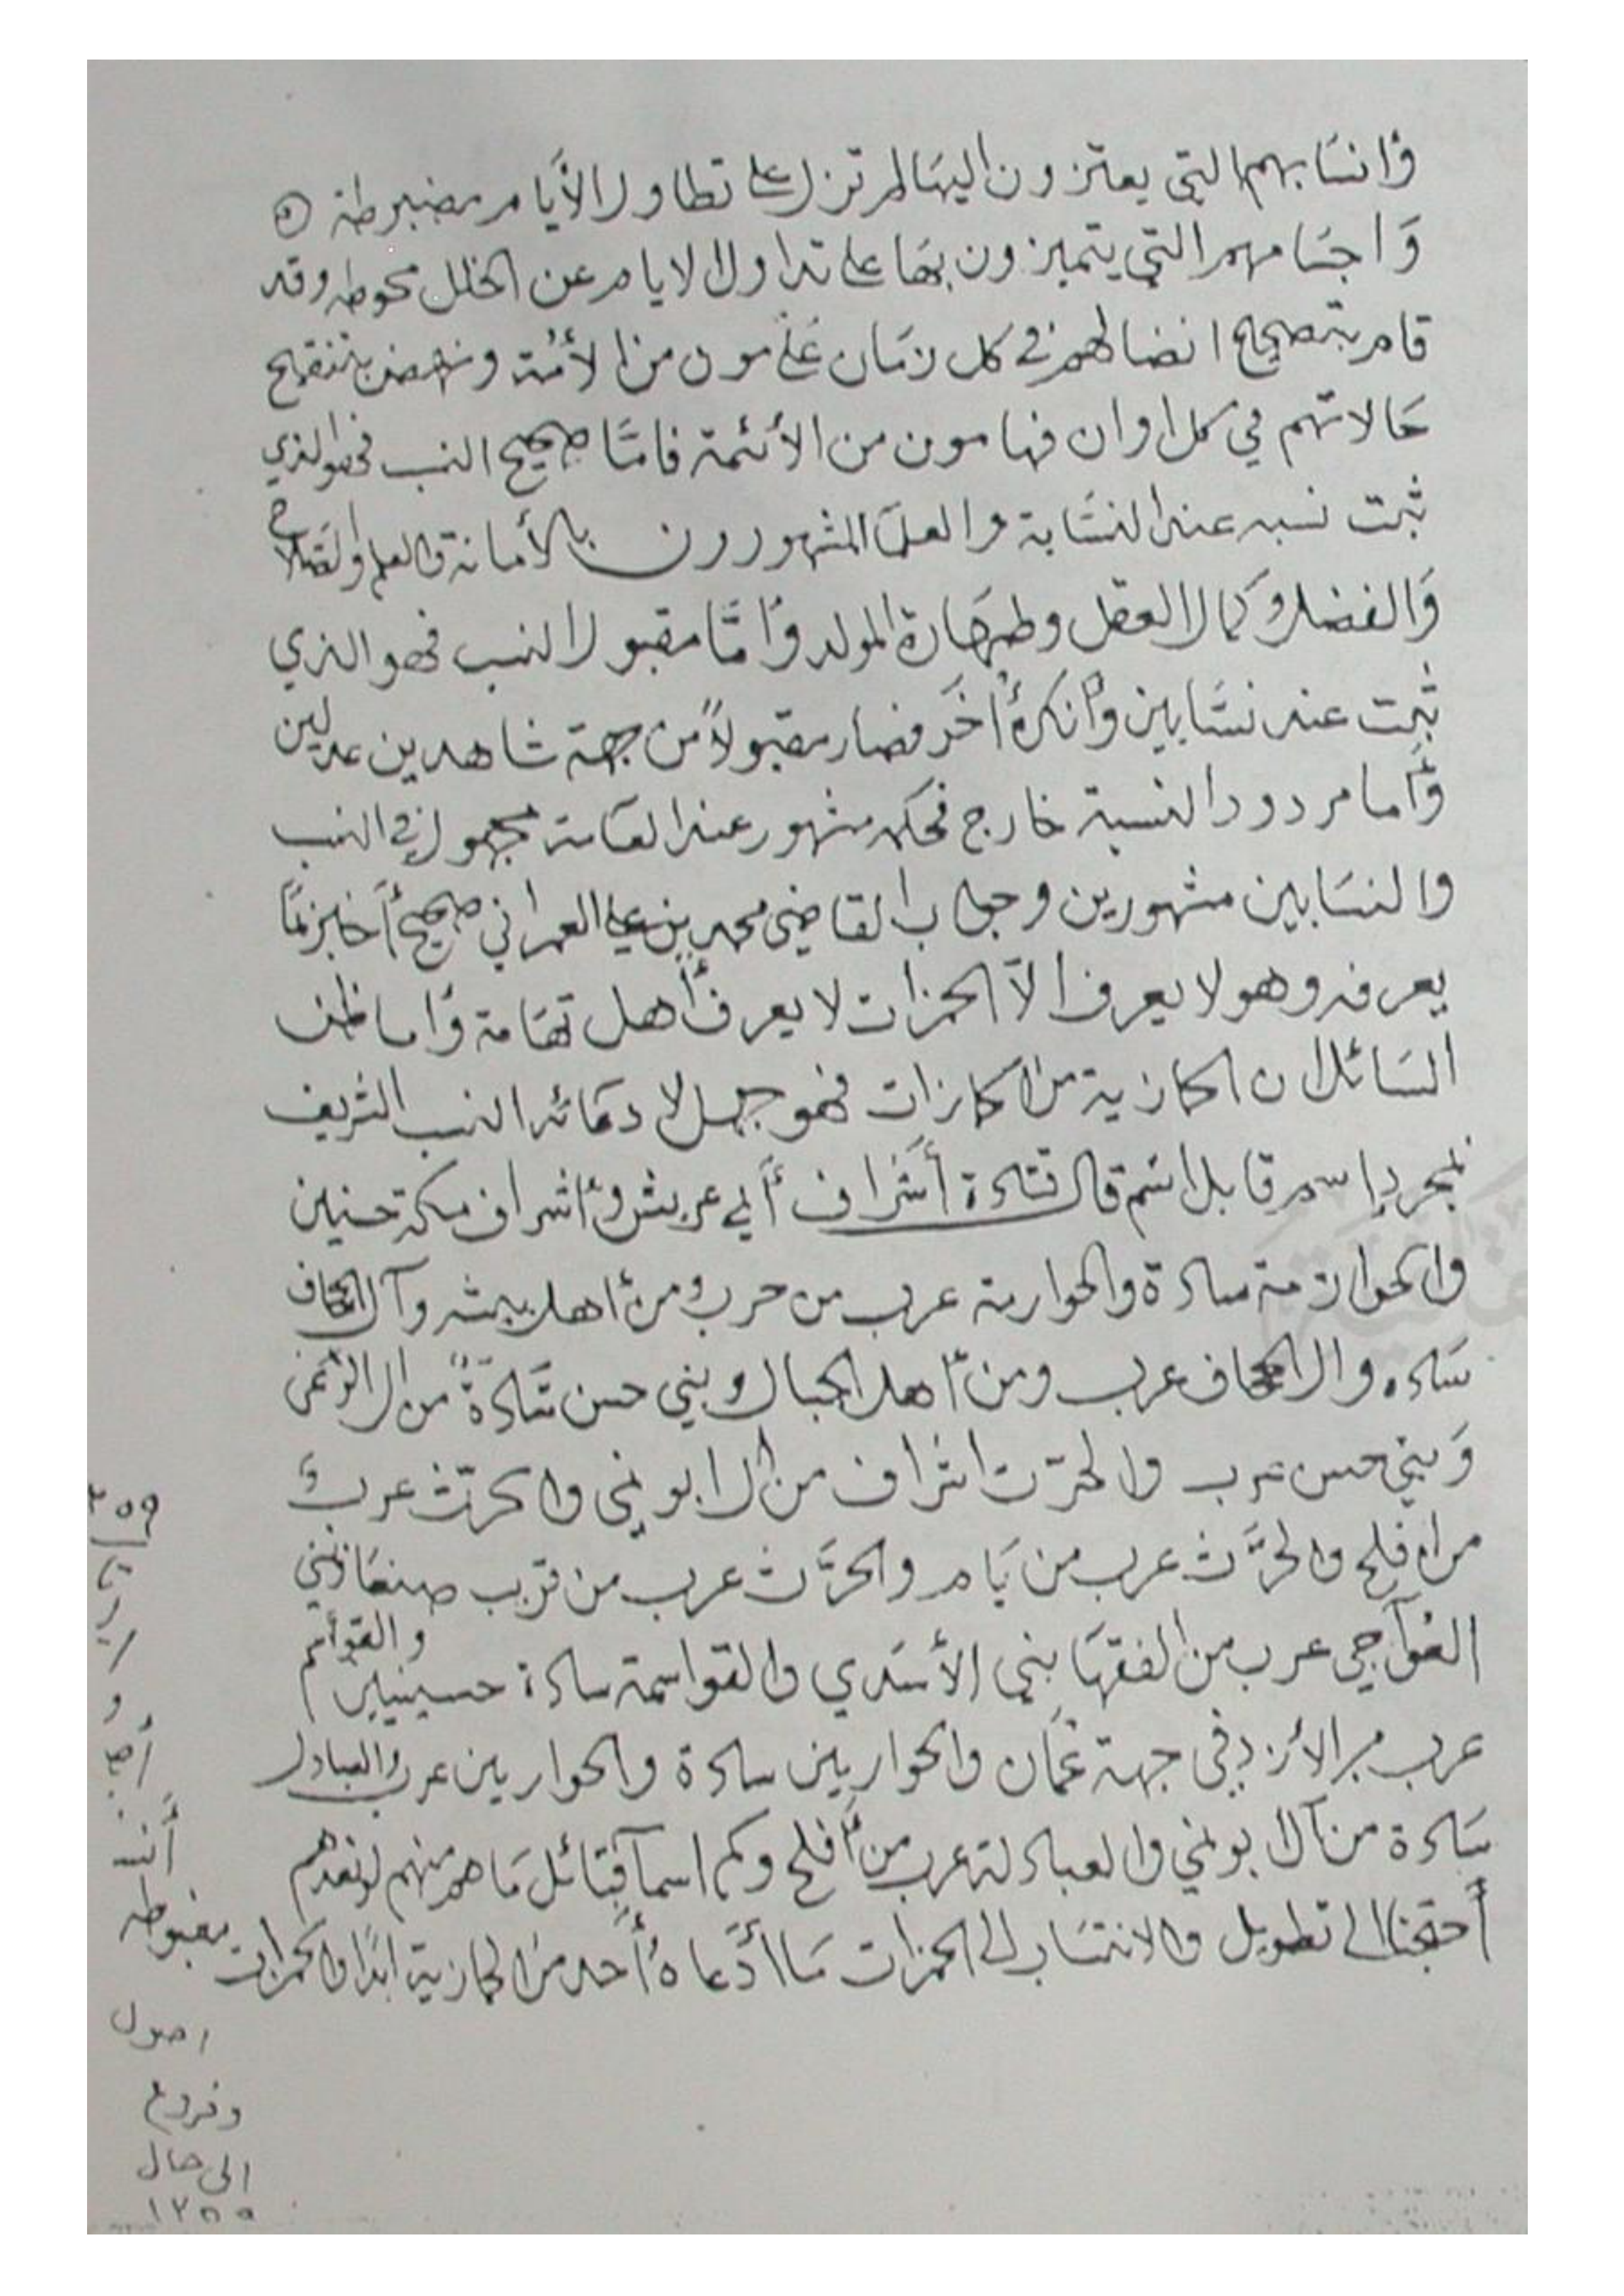 وَانسَابهم التي يعتزون اليهَا لم تزل على تطاول الأيَام مضبوطة
وَاجسَامهم التي يتميزون بهَا على تداول الايام عن الخلل محوطه وقد
قام بتصحيح انضالهم في كل زمَان عَلَّامون من الأئمة ونهض بتنقيح
حَالاتهم في كل اوان فهامون من الأئمة فامَّا صحيح النسب فهو الذي
ثبت نسبه عند النسَّابة والعلمَا المشهورون بالأمانة والعلم والصَلاح
وَالفضل وكمال العقل وطهَارة المولد وَأمَّا مقبول النسب فهو الذي
ثبت عند نسَّابين وأنكرهُ أخَر فصار مقبولاً من جهة شاهدين عدلين
وَأما مردود النسبة خارج فحكمه مشهور عند العَامة مجهول في النسب
والنسَابين مشهورين وجواب القاضي محمد بن علي العمراني صحيح أَخبر بمَا
يعرفه وهو لا يعرف الاَّ الحمزات لا يعرف أهل تهَامة وَأما ظن
السَائل ان الحازية من الحازات فهو جهل لا دعَائه النسب الشريف
لمجرد إسم قابل اسَم قال قتادة أشَراف أبي عريش وَأشراف مكة حسنين
والحوازمة سادة والحوازمة عرب من حرب ومن أهل بيشه وآل الحاف
سَاده وال الحاف عرب ومن أهل الجبال وبني حسن سَادةً من ال النعمي
وَبني حسن عرب والحرّث اشراف من ال ابو نمي والحرّث عربٌ
من افلح والحرَّث عرب من يَام والحرَّث عرب من قرب صنعَا وبني
العَوآجي عرب من الفقهَا بني الأسَدي والقواسمة سادة حسينيين والقوأسم
عرب من الأزد في جهة عُمَان والحواريين سادة والحواريين عرب والعبادل
سَادة من آل بو نمي والعبادلة عرب من أفلح وكم اسمآ قبَائل مَا هم منهم لو نعدهم
أحتجنا الى تطويل والانتسَاب الى الحمزات مَا أدَّعاهُ أحد من الحازية ابدًا والحمزات مضبوطه
اصول
وفروع
الى حال
١٢٥٥